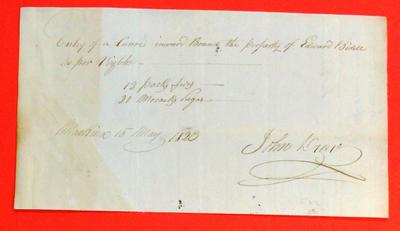 Entry of a Canoe inward Bound the property of Edward Biddle
as per
12 packs furs
21 Mococks Sugar
Mackinac 15 May 1823
John Drew